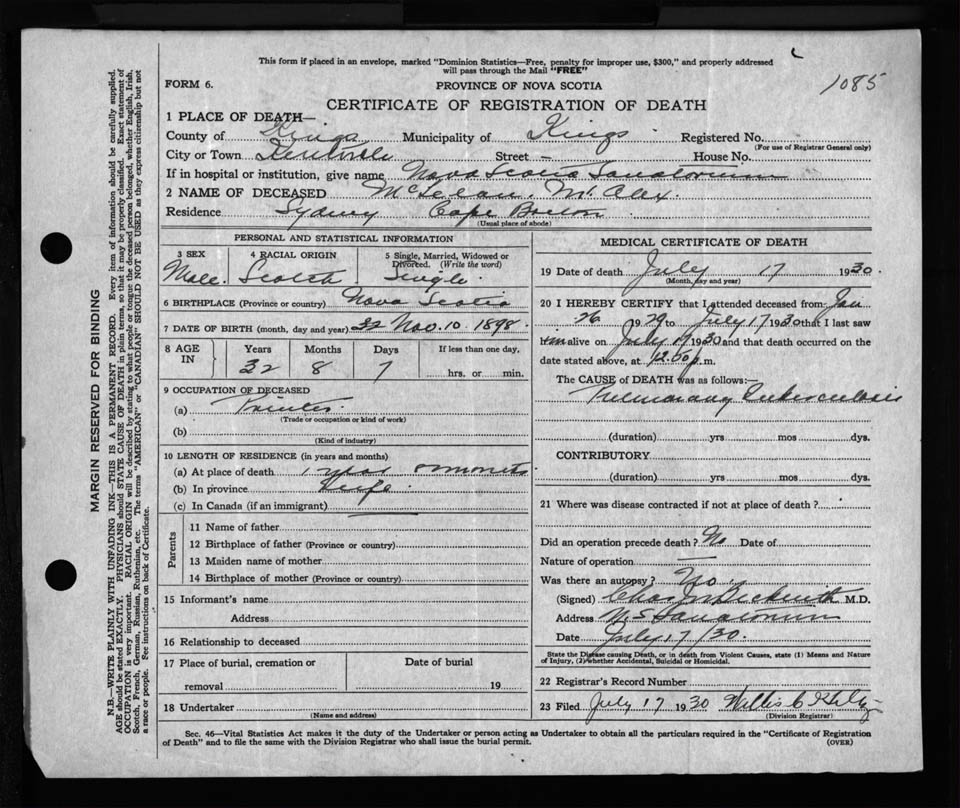 This form if placed in an envelope, marked "Dominion Statistics—Free, penalty for improper use, $300," and properly addressed
will pass through the Mail "FREE"
1085
FORM 6.
PROVINCE OF NOVA SCOTIA
CERTIFICATE OF REGISTRATION OF DEATH
1 PLACE OF DEATH—
County of Kings Municipality of Kings Registered No.
(For use of Registrar General only)
City or Town Kentville Street — House No.
If in hospital or institution, give name Nova Scotia Sanatorium
2 NAME OF DECEASED McLean, Mr. Alex.
Residence Sydney Cape Breton
(Usual place of abode)
PERSONAL AND STATISTICAL INFORMATION
3 SEX 4 RACIAL ORIGIN 5 Single, Married, Widowed or
Divorced. (Write the word)
Male. Scotch Single
6 BIRTHPLACE (Province or country) Nova Scotia
7 DATE OF BIRTH (month, day and year) 32 Nov. 10. 1898.
8 AGE IN Years Months Days If less than one day,
32 8 7 hrs. or min.
9 OCCUPATION OF DECEASED
(a) Printer.
(Trade or occupation or kind of work)
(b)
(Kind of industry)
10 LENGTH OF RESIDENCE (in years and months)
(a) At place of death 1 year months
(b) In province Life
(c) In Canada (if an immigrant)
Parents
11 Name of father
12 Birthplace of father (Province or country)
13 Maiden name of mother
14 Birthplace of mother (Province or country)
15 Informant's name
Address
16 Relationship to deceased
17 Place of burial, cremation or Date of burial
removal 19
18 Undertaker
(Name and address)
MEDICAL CERTIFICATE OF DEATH
19 Date of death July 17 1930.
(Month, day and year)
20 I HEREBY CERTIFY that I attended deceased from Jan
26 1929 to July 17 1930 that I last saw
him alive on July 17 1930 and that death occurred on the
date stated above, at 12.50 p.m.
The CAUSE of DEATH was as follows:—
Pulmonary Tuberculosis
(duration) yrs mos dys.
CONTRIBUTORY
(duration) yrs mos dys.
21 Where was disease contracted if not at place of death?
Did an operation precede death? No Date of
Nature of operation
Was there an autopsy? No.
(Signed) Chas J Beckwith M.D.
Address N.S Sanatorium
Date July 17/30.
State the Disease causing Death, or in death from Violent Causes, state (1) Means and Nature
of Injury, (2) whether Accidental, Suicidal or Homicidal.
22 Registrar's Record Number
23 Filed July 17 1930 Willis C
(Division Registrar)
Sec. 46—Vital Statistics Act makes it the duty of the Undertaker or person acting as Undertaker to obtain all the particulars required in the "Certificate of Registration
of Death" and to file the same with the Division Registrar who shall issue the burial permit.
(OVER)
MARGIN RESERVED FOR BINDING
N.B.—WRITE PLAINLY WITH UNFADING INK—THIS IS A PERMANENT RECORD. Every item of information should be carefully supplied.
AGE should be stated EXACTLY. PHYSICIANS should STATE CAUSE OF DEATH in plain terms, so that it may be properly classified. Exact statement of
OCCUPATION is very important. RACIAL ORIGIN will be described by stating to what people or tongue the deceased person belonged, whether English, Irish,
Scotch, French, German, Russian, Ruthenian, etc. The terms "AMERICAN" or "CANADIAN" SHOULD NOT BE USED as they express citizenship but not
a race or people. See instructions on back of Certificate.